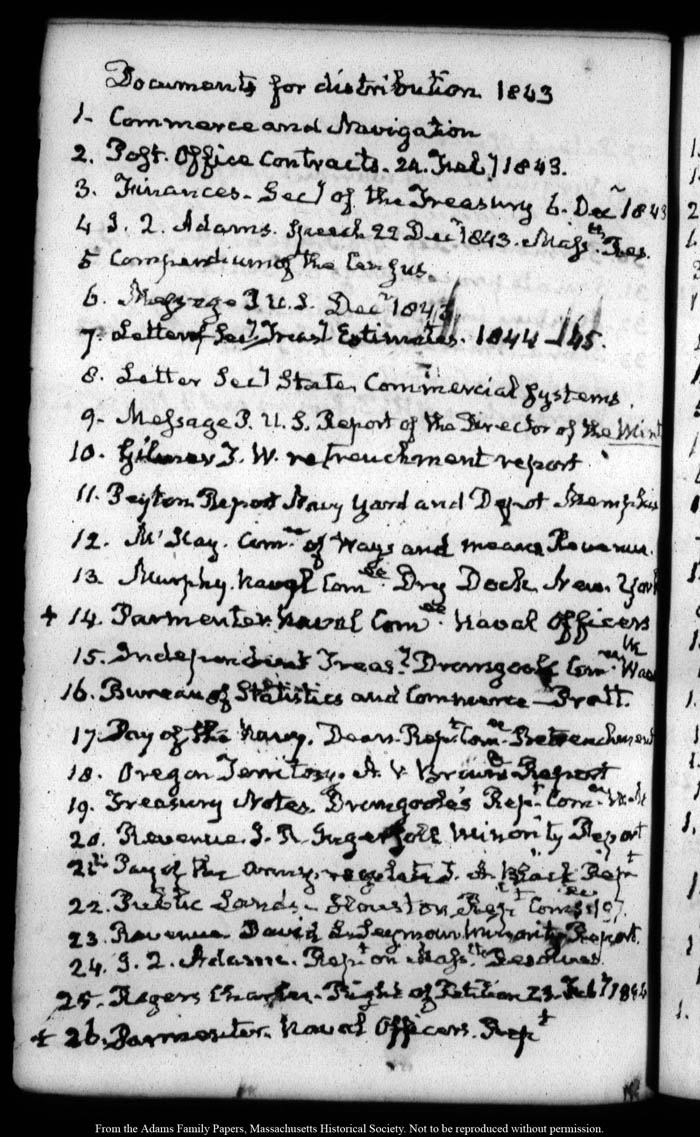 Documents for distribution 1843
1- Commerce and Navigation
2. Post. Office Contracts. 24. Feby 1843.
3. Finances- Secy of the Treasury 6. Decr 1843
4 J. Q. Adams. Speech 22 Decr 1843. Massts Res.
5 Compendium of the Census.
6. Message P. U.S. Decr 1843.
7. Letter of Secy Treasy Estimates. 1844-45.
8. Letter Secy State. Commercial Systems.
9- Message P. U. S. Report of the Director of the Mint
10. Gilmer T. W. retrenchment report
11. Peyton. Report Navy Yard and Depot Memphis
12. McKay. Comee of Ways and means Revenue.
13. Murphy. Naval Comee Dry Dock New. York
+ 14. Parmenter. Naval Comee Naval Officers
15. Independent Treasy Dromgoole Comee Ways
16. Bureau of Statistics and Commerce- Pratt.
17. Pay of the Navy. Rept Comee Retrenchment
18. Oregon Territory. A. V. Brown's Report
19. Treasury Notes. Dromgoole's Rept Comee W. M
20. Revenue J. R. Ingersoll Minority Report
21. Pay of the Army. J. A. Black Rept
22. Public Lands- Houston Rept
23. Revenue David L. Seymour Minority Report.
24. J. Q. Adams. Rept on Massts Resolves
25. Rogers Charles. Right of Petition 23. Feby 1844
+ 26. Parmenter. Naval Officers. Rept
From the Adams Family Papers, Massachusetts Historical Society. Not to be reproduced without permission.